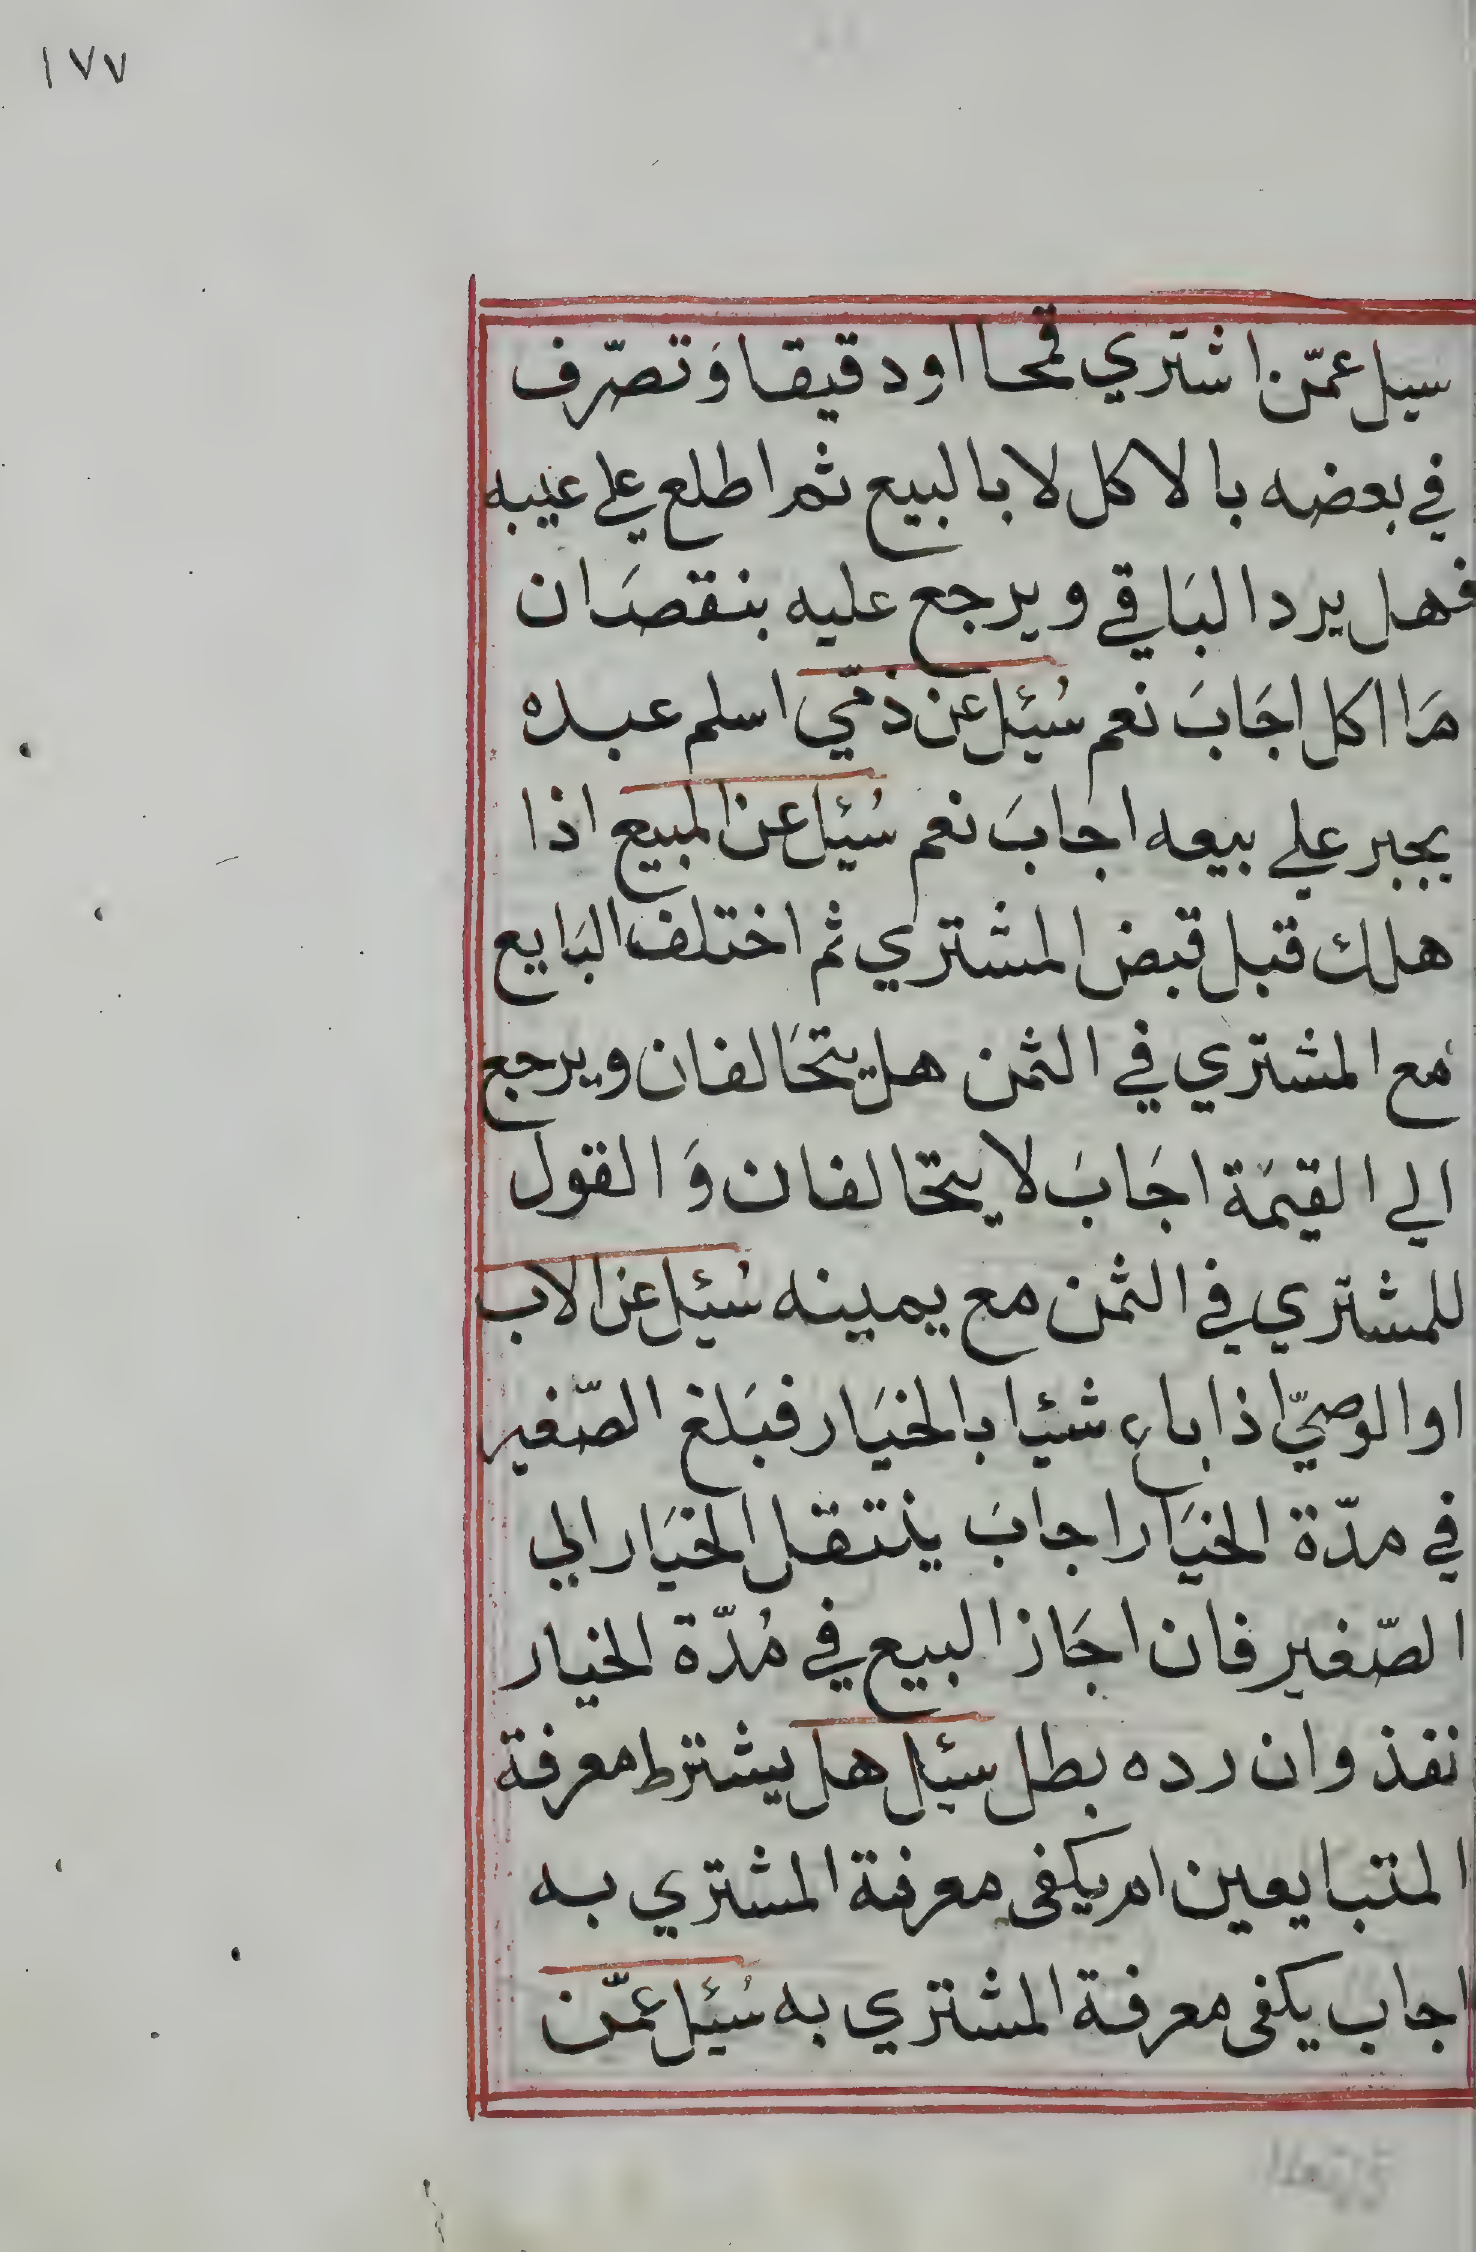 ١٧٧
سيل عمّن اشتري قمحا او دقيقا وَتصرّف
في بعضه بالاكل لا بالبيع ثم اطلع علي عيبه
فهل يرد البَاقي ويرجع عليه بنقصَان
مَا اكل اجَابَ نعم سُئيل عن ذمّي اسلم عبده
يجبر علي بيعه اجابَ نعم سُئيل عن المبيع اذا
هلك قبل قبض المشتري ثم اختلف البَايع
مع المشتري في الثمن هل يتحَالفان ويرجع
الي القيمَة اجَابَ لا يتحالفان وَالقول
للمشتري في الثمن مع يمينه سُئيل عن الاب
او الوصيّ اذا باع شئيا بالخيَار فبَلغ الصّغير
في مدّة الخيَار اجابَ ينتقل الخيَار الي
الصّغير فان اجَاز البيع في مُدّة الخيار
نفذ وان رده بطل سئيل هل يشترط معرفة
المتبايعين ام يكفى معرفة المشتري به
اجاب يكفى معرفة المشتري به سُئيل عمّن